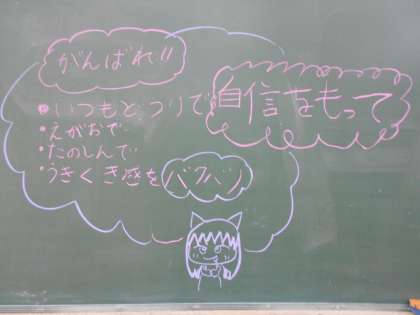 がんばれ!!
●いつもどうりで 自信をもって
・えがおで
・たのしんで
・うきくき感を バクバツ